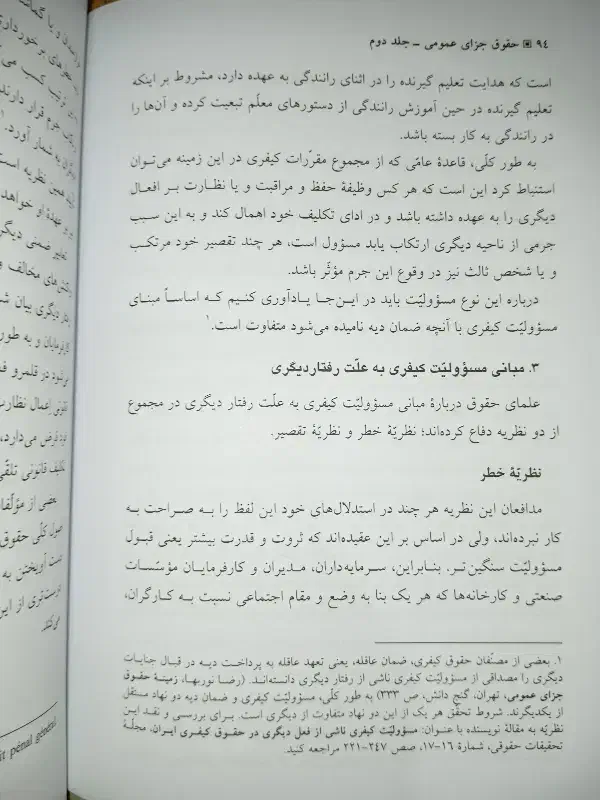 ۹۴ ▣ حقوق جزای عمومی ـ جلد دوم
است که هدایت تعلیم گیرنده را در اثنای رانندگی به عهده دارد، مشروط بر اینکه
تعلیم گیرنده در حین آموزش رانندگی از دستورهای معلّم تبعیت کرده و آن‌ها را
در رانندگی به کار بسته باشد.
به طور کلّی، قاعدهٔ عامّی که از مجموع مقرّرات کیفری در این زمینه می‌توان
استنباط کرد این است که هر کس وظیفهٔ حفظ و مراقبت و یا نظارت بر افعال
دیگری را به عهده داشته باشد و در ادای تکلیف خود اهمال کند و به این سبب
جرمی از ناحیه دیگری ارتکاب یابد مسؤول است، هر چند تقصیر خود مرتکب
و یا شخص ثالث نیز در وقوع این جرم مؤثّر باشد.
درباره این نوع مسؤولیّت باید در این‌جا یادآوری کنیم که اساساً مبنای
مسؤولیّت کیفری با آنچه ضمان دیه نامیده می‌شود متفاوت است.۱
۳. مبانی مسؤولیّت کیفری به علّت رفتاردیگری
علمای حقوق دربارهٔ مبانی مسؤولیّت کیفری به علّت رفتار دیگری در مجموع
از دو نظریه دفاع کرده‌اند؛ نظریّهٔ خطر و نظریّهٔ تقصیر.
نظریّهٔ خطر
مدافعان این نظریه هر چند در استدلال‌های خود این لفظ را به صراحت به
کار نبرده‌اند، ولی در اساس بر این عقیده‌اند که ثروت و قدرت بیشتر یعنی قبول
مسؤولیّت سنگین‌تر. بنابراین، سرمایه‌داران، مدیران و کارفرمایان مؤسّسات
صنعتی و کارخانه‌ها که هر یک بنا به وضع و مقام اجتماعی نسبت به کارگران،
۱. بعضی از مصنّفان حقوق کیفری، ضمان عاقله، یعنی تعهد عاقله به پرداخت دیه در قبال جنایات
دیگری را مصداقی از مسؤولیّت کیفری ناشی از رفتار دیگری دانسته‌اند. (رضا نوربها، زمینهٔ حقوق
جزای عمومی، تهران، گنج دانش، ص ۳۳۳) به طور کلّی، مسؤولیّت کیفری و ضمان دیه دو نهاد مستقل
از یکدیگرند. شروط تحقّق هر یک از این دو نهاد متفاوت از دیگری است. برای بررسی و نقد این
نظریّه به مقالهٔ نویسنده با عنوان: مسؤولیّت کیفری ناشی از فعل دیگری در حقوق کیفری ایران، مجلّهٔ
تحقیقات حقوقی، شمارهٔ ۱۶-۱۷، صص ۲۴۷-۲۲۱ مراجعه کنید.